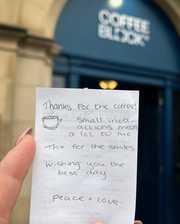 COFFEE
BLOCK
Thanks for the coffee!
Small inter-
actions mean
a lot to me
Thx for the smiles
Wishing you the
best day
Peace + love